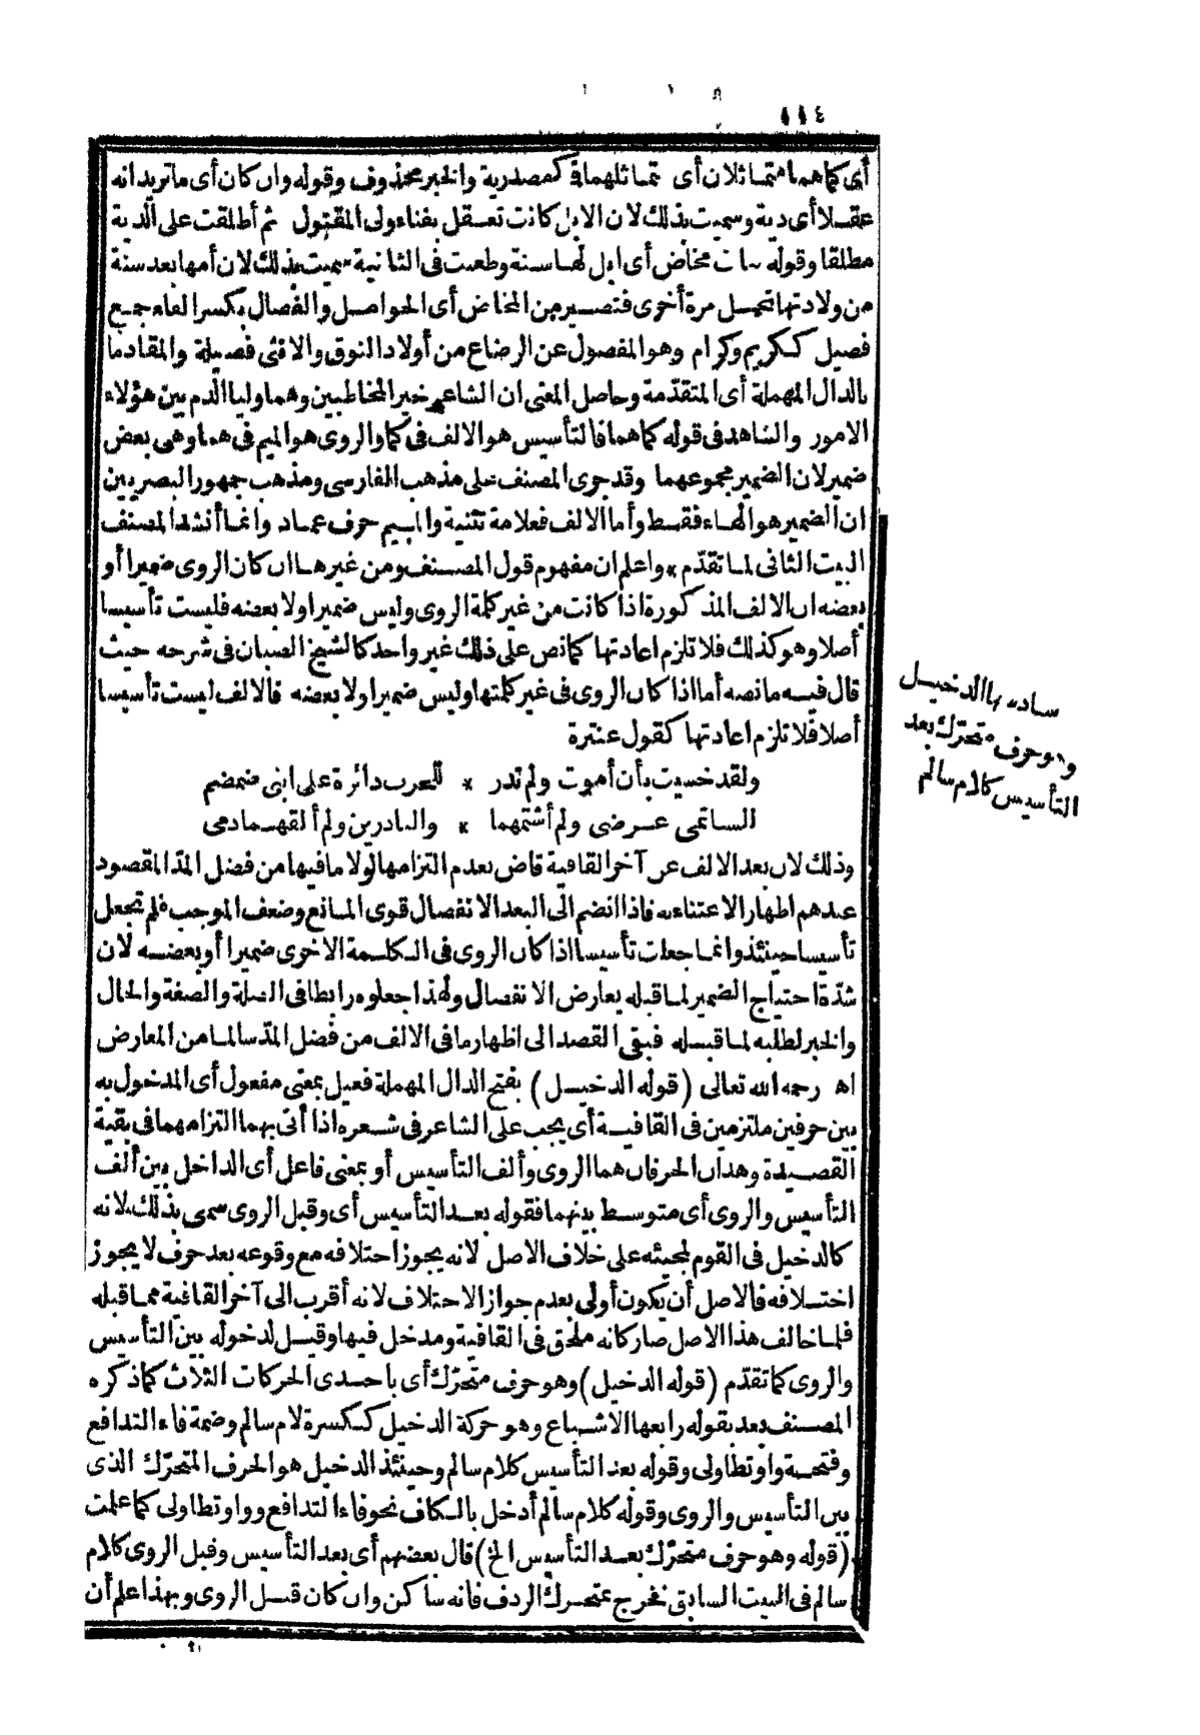 ١١٤
أى كما هما متماثلان أى تماثلهما فكمصدرية والخبر محذوف وقوله وان كان أى ما تريدانه
عقلا أى دية وسميت بذلك لان الابل كانت تعقل بفناء ولى المقتول ثم أطلقت على الدية
مطلقا وقوله بنات مخاض أى ابل لها سنة وطعنت فى الثانية سميت بذلك لان أمها بعد سنة
من ولادتها تحمل مرة أخرى فتصير من المخاض أى الحوامل والفصال بكسر الفاء جمع
فصيل ككريم وكرام وهو المفصول عن الرضاع من أولاد النوق والانثى فصيلة والمقادما
بالدال المهملة أى المتقدّمة وحاصل المعنى ان الشاعر خير المخاطبين وهما وليا الدم بين هؤلاء
الامور والشاهد فى قوله كما هما فالتأسيس هو الالف فى كما والروى هو الميم فى هما وهى بعض
ضمير لان الضمير مجموعهما وقد جرى المصنف على مذهب الفارسى ومذهب جمهور البصريين
ان الضمير هو الهاء فقط وأما الالف فعلامة تثنية والميم حرف عماد وانما أنشد المصنف
البيت الثانى لما تقدّم * واعلم ان مفهوم قول المصنف ومن غيرها ان كان الروى ضميرا أو
بعضه ان الالف المذكورة اذا كانت من غير كلمة الروى وليس ضميرا ولا بعضه فليست تأسيسا
أصلا وهو كذلك فلا تلزم اعادتها كما نص على ذلك غير واحد كالشيخ الصبان فى شرحه حيث
قال فيه ما نصه أما اذا كان الروى فى غير كلمتها وليس ضميرا ولا بعضه فالالف ليست تأسيسا
أصلا فلا تلزم اعادتها كقول عنترة
ولقد خشيت بأن أموت ولم تدر * للحرب دائرة على ابنى ضمضم
الشاتمى عرضى ولم أشتمهما * والناذرين ولم ألقهما دمى
وذلك لان بعد الالف عن آخر القافية قاض بعدم التزامها لولا ما فيها من فضل المدّ المقصود
عندهم اظهار الاعتناء به فاذا انضم الى البعد الانفصال قوى المانع وضعف الموجب فلم تجعل
تأسيسا حينئذ وانما جعلت تأسيسا اذا كان الروى فى الكلمة الاخرى ضميرا أو بعضه لان
شدّة احتياج الضمير لما قبله يعارض الانفصال ولهذا جعلوه رابطا فى الصلة والصفة والحال
والخبر لطلبه لما قبله فبقى القصد الى اظهار ما فى الالف من فضل المدّ سالما من المعارض
اه رحمه الله تعالى (قوله الدخيل) بفتح الدال المهملة فعيل بمعنى مفعول أى المدخول به
بين حرفين ملتزمين فى القافية أى يجب على الشاعر فى شعره اذا أتى بهما التزامهما فى بقية
القصيدة وهذان الحرفان هما الروى وألف التأسيس أو بمعنى فاعل أى الداخل بين ألف
التأسيس والروى أى متوسط بينهما فقوله بعد التأسيس أى وقبل الروى سمى بذلك لانه
كالدخيل فى القوم لمجيئه على خلاف الاصل لانه يجوز اختلافه مع وقوعه بعد حرف لا يجوز
اختلافه فالاصل أن يكون أولى بعدم جواز الاختلاف لانه أقرب الى آخر القافية مما قبله
فلما خالف هذا الاصل صار كانه ملحق فى القافية ومدخل فيها وقيل لدخوله بين التأسيس
والروى كما تقدّم (قوله الدخيل) وهو حرف متحرّك أى باحدى الحركات الثلاث كما ذكره
المصنف بعد بقوله رابعها الاشباع وهو حركة الدخيل ككسرة لام سالم وضمة فاء التدافع
وفتحة واو تطاولى وقوله بعد التأسيس كلام سالم وحينئذ الدخيل هو الحرف المتحرّك الذى
بين التأسيس والروى وقوله كلام سالم أدخل بالكاف نحو فاء التدافع وواو تطاولى كما علمت
(قوله وهو حرف متحرّك بعد التأسيس الخ) قال بعضهم أى بعد التأسيس وقبل الروى كلام
سالم فى البيت السابق فخرج بمتحرك الردف فانه ساكن وان كان قبل الروى وبهذا علم أن
سادسها الدخيل
وهو حرف متحرّك بعد
التأسيس كلام سالم